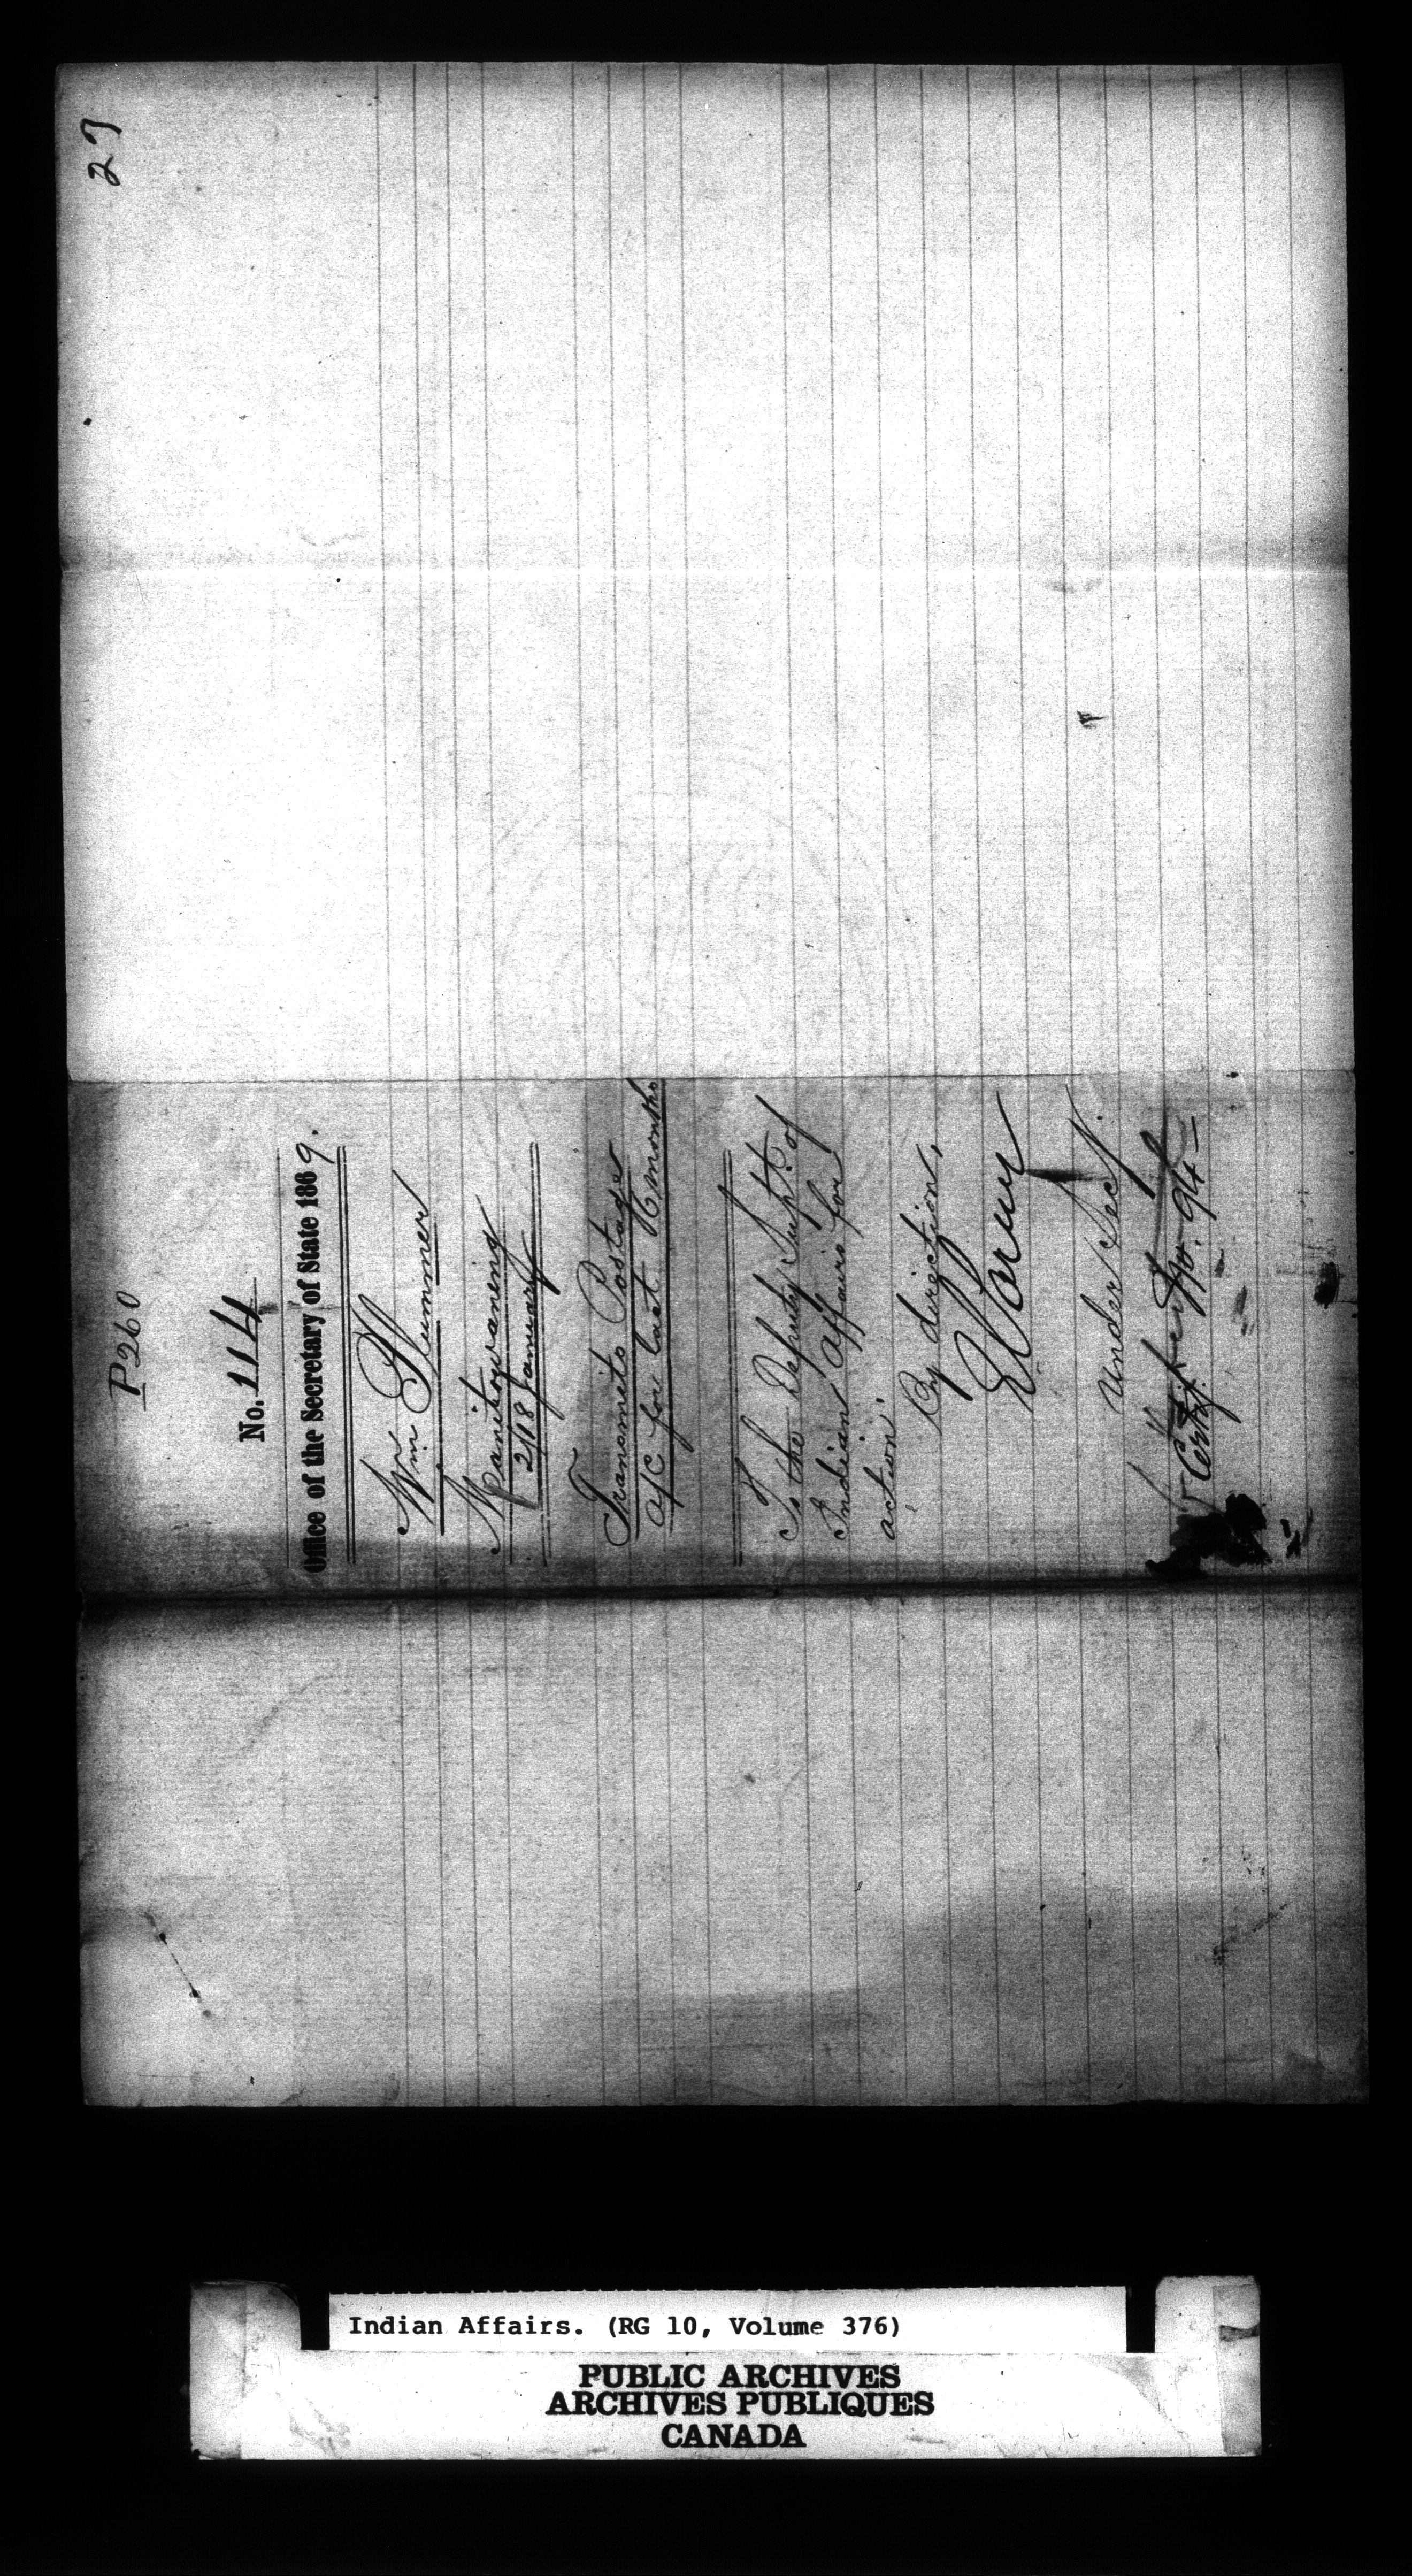 27
P260
No. 114
Office of the Secretary of State 1869.
Wm Plummer
Manitowaning
2/18 January
Transmits Postage
a/c for last 6 months
To the Deputy Supt. of
Indian Affairs for
action.
By direction,
E Parent
Under Secy.
No. 94
Indian Affairs. (RG 10, Volume 376)
PUBLIC ARCHIVES
ARCHIVES PUBLIQUES
CANADA